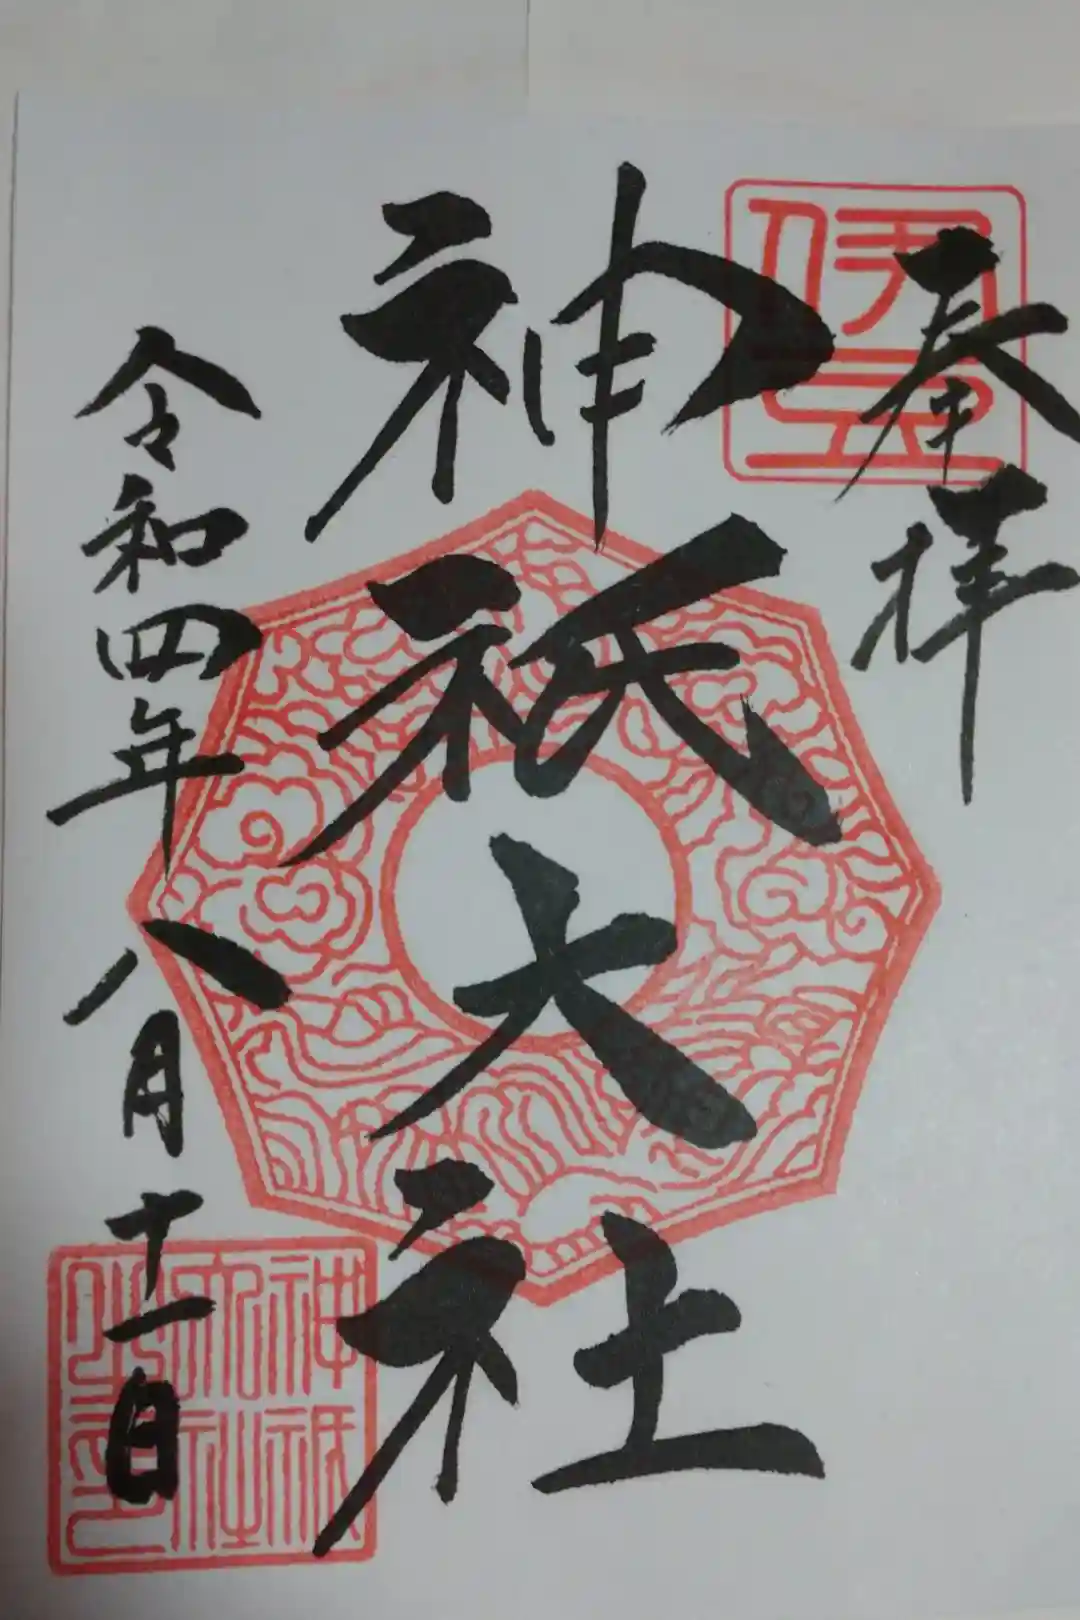 奉拝
伊豆
神祇大社
令和四年八月十一日
神祇
大社
之印